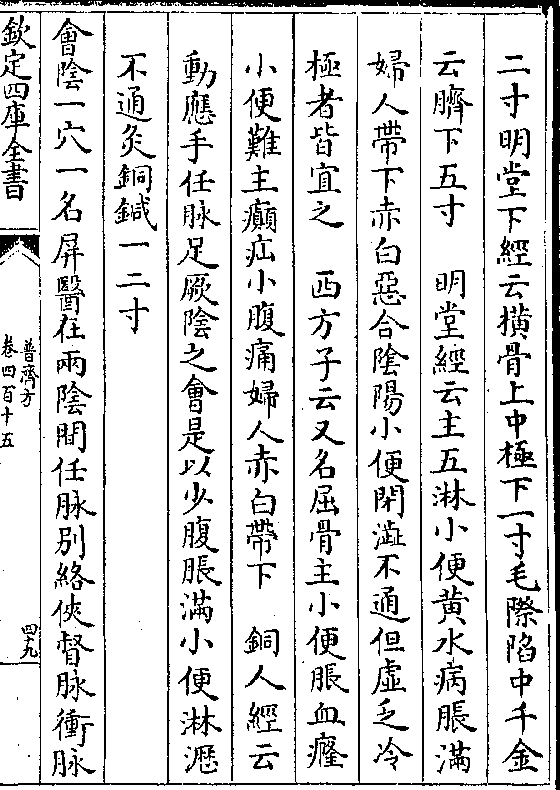 二寸明堂下經云横骨上中極下一寸毛際陷中千金
云臍下五寸　明堂經云主五淋小便黄水病脹滿
婦人帶下赤白惡合陰陽小便閉澁不通但虚乏冷
極者皆宜之　西方子云又名屈骨主小便脹血癃
小便難主癲疝小腹痛婦人赤白帶下　銅人經云
動應手任脉足厥陰之會是以少腹脹滿小便淋瀝
不通灸銅鍼一二寸
會陰一穴一名屏翳在兩陰間任脉别絡俠督脉衝脉
欽定四庫全書
普濟方
卷四百十五
四九